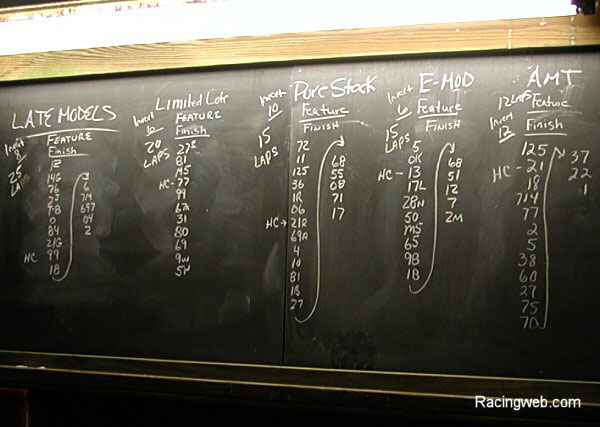 LATE MODELS
Invert
8
25
LAPS
FEATURE
Finish
12
14G
76
75
9-B
0
84
21G
HC 99
1B
6
7M
697
04
2
Limited Late
Invert
10
20
LAPS
FEATURE
Finish
275
81
M5
HC - 77
99
67x
31
80
69
9w
5w
Pure Stock
Invert
10
15
LAPS
Feature
FINISH
72
11
125
36
1R
06
HC → 21R
69A
4
10
81
1B
27
68
55
08
71
17
E-MOD
Invert
6
15
LAPS
Feature
FINISH
5
0K
HC - 13
17L
28N
50
M5
65
9B
1B
68
51
12
7
2M
AMT
12 LAPS
Invert
12
Feature
Finish
125
HC - 21
18
714
77
2
5
38
60
27
75
70
37
22
1
Racingweb.com